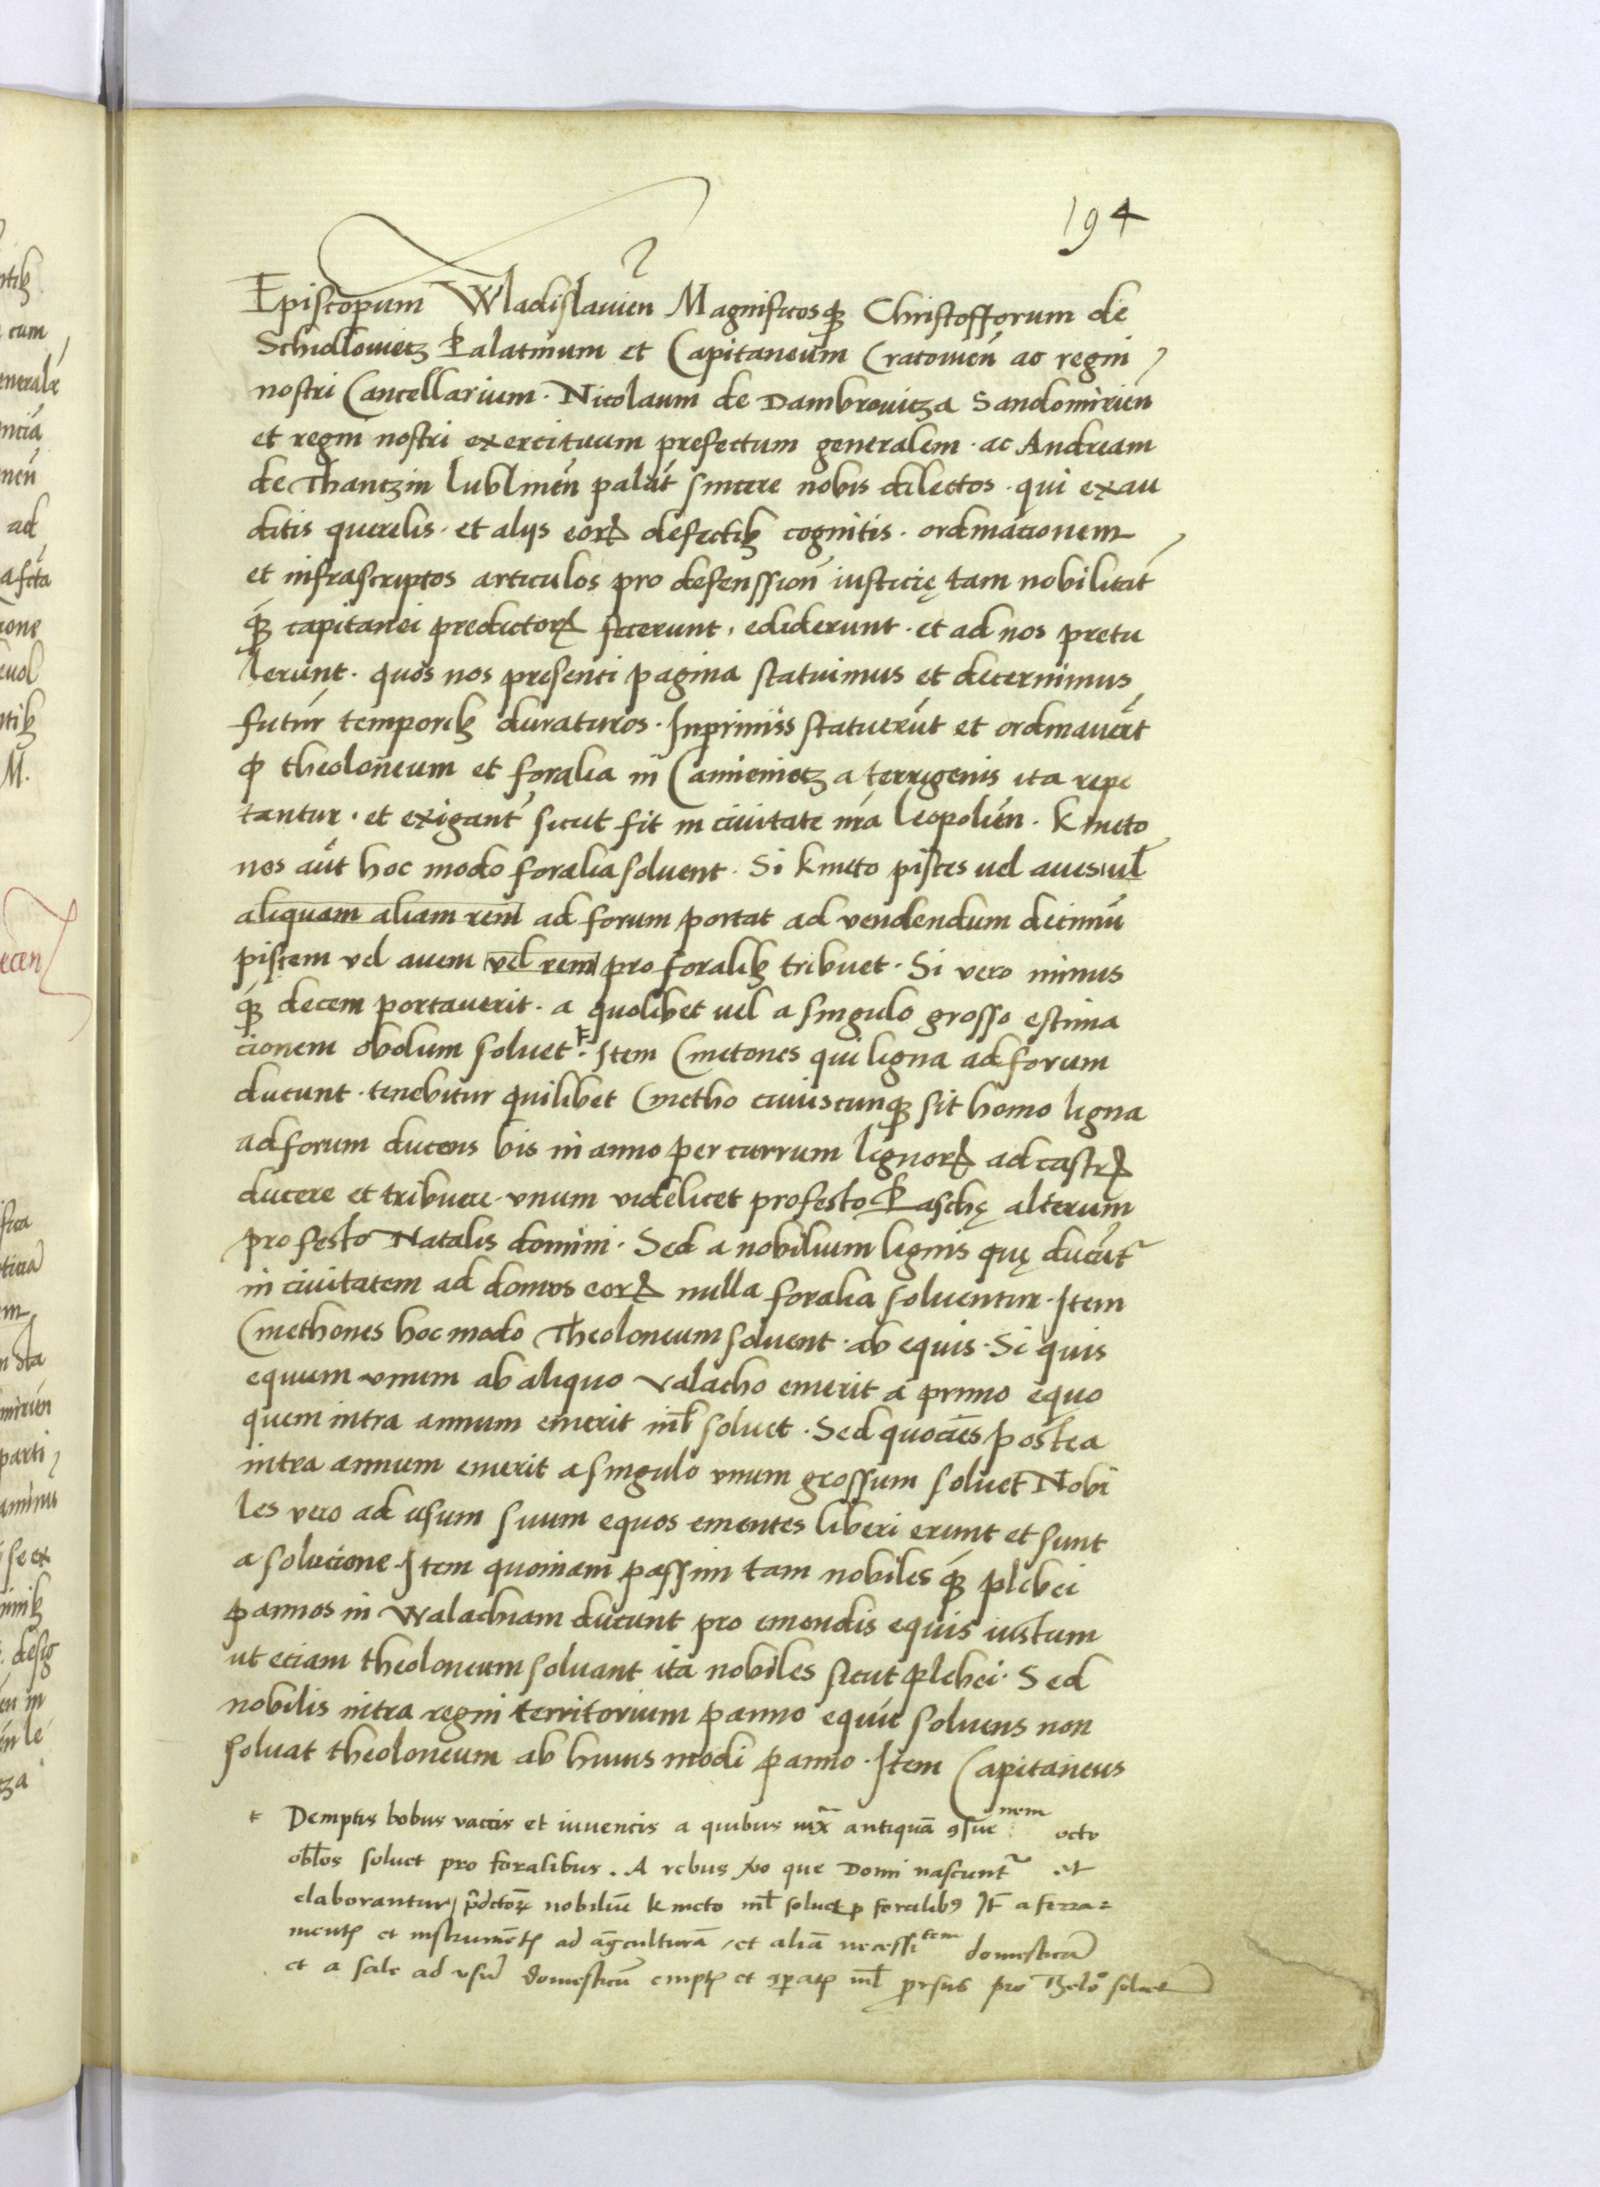 194
Episcopum Wladislauien Magnificosqꝫ Christofforum de
Schidlowietz Palatinum et Capitaneum Cratouień ac regni
nostri Cancellarium · Nicolaum de Dambrouitza Sandomirień
et regni nostri exercituum prefectum generalem · ac Andream
de Thantzin lublineń palat̄ sincere nobis dilectos · qui exau
ditis querelis · et alijs eoꝝ defectibꝫ cognitis · ordinacionem
et infrascriptos articulos pro defenssion̄ iusticię tam nobilitat̄
qꝫ́ capitanei predictoꝝ fecerunt, ediderunt · et ad nos pretu
lerunt · quos nos presenti pagina statuimus et decernimus
futúr temporibꝫ duraturos · Inprimiss statuerūt et ordinauer̄t
ꝙ theoloneum et foralia in Camienietz a terrigenis ita repe
tantur · et exigant̄ sicut fit in ciuitate nr̄a leopolień · Kmeto
nes aūt hoc modo foralia soluent · Si kmeto pisces uel aues ul̄
aliquam aliam rem ad forum portat ad vendendum decimū
piscem vel auem vel rem pro foralibꝫ tribuet · Si vero minus
qꝫ́ decem portauerit · a quolibet uel a singulo grosso estima
cionem obolum soluet · Item Cmetones qui ligna ad forum
ducunt · tenebitur quilibet Cmetho cuiuscunqꝫ sit homo ligna
ad forum ducens bis in anno per currum lignoꝝ ad castꝝ
ducere et tribuere · vnum videlicet pro festo Paschę alterum
pro festo Natalis domini · Sed a nobilium lignis quę ducūt̄
in ciuitatem ad domos eoꝝ nulla foralia soluentur · Item
Cmethones hoc modo Theoloneum soluent · ab equis · Si quis
equum vnum ab aliquo valacho emerit a primo equo
quem intra annum emerit nil̄ soluet · Sed quocie̅s postea
intra annum emerit a singulo vnum grossum soluet Nobi
les vero ad usum suum equos ementes liberi erunt et sunt
a solucione · Item quoniam passim tam nobiles qꝫ́ plebei
pannos in Walachiam ducunt pro emendis equis iustum
ut eciam theoloneum soluant ita nobiles sicut plebei · Sed
nobilis intra regni territorium panno equū soluens non
soluat theoloneum ab huius modi panno · Item Capitaneus
Demptis bobus vaccis et iuuencis a quibus iux̄ antiquā ꝯsue nem octo
obl̄os soluet pro foralibus . A rebus v̊o que Domi nascunt̄ et
elaborantur, p̄dctoꝝ nobiliū kmeto nil̄ soluet ꝓ foralibꝰ It̄ a ferra=
mentꝭ et instrumētꝭ ad agculturā, et aliā necessi tem domesticā
et a sale ad vsū domesticū emptꝭ et ꝯparatꝭ nil̄ prorsus pro Theloº soluet